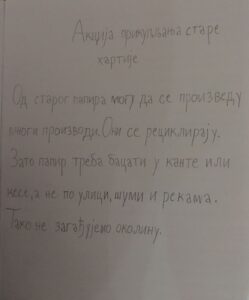 Акција прикупљања старе
хартије
Од старог папира могу да се произведу
многи производи. Они се рециклирају.
Зато папир треба бацати у канте или
кесе, а не по улици, шуми и рекама.
Тако не загађујемо околину.